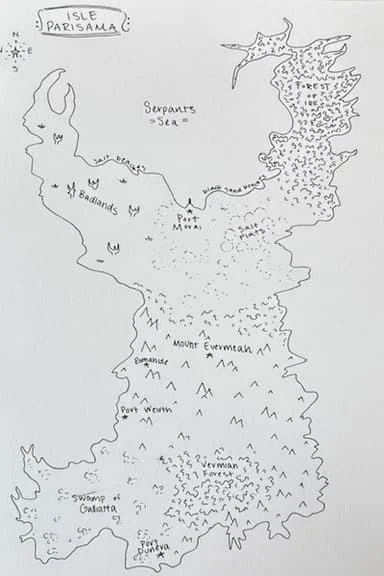 ISLE
PARISAMA
N
E
S
Serpants
Sea
FOREST
OF
salt beaches
black sand beaches
Badlands
Port
Morai
Salt
Flats
Mount Evermeah
Port Weuth
Vermian
Forest
Swamp of
Port
Dunera